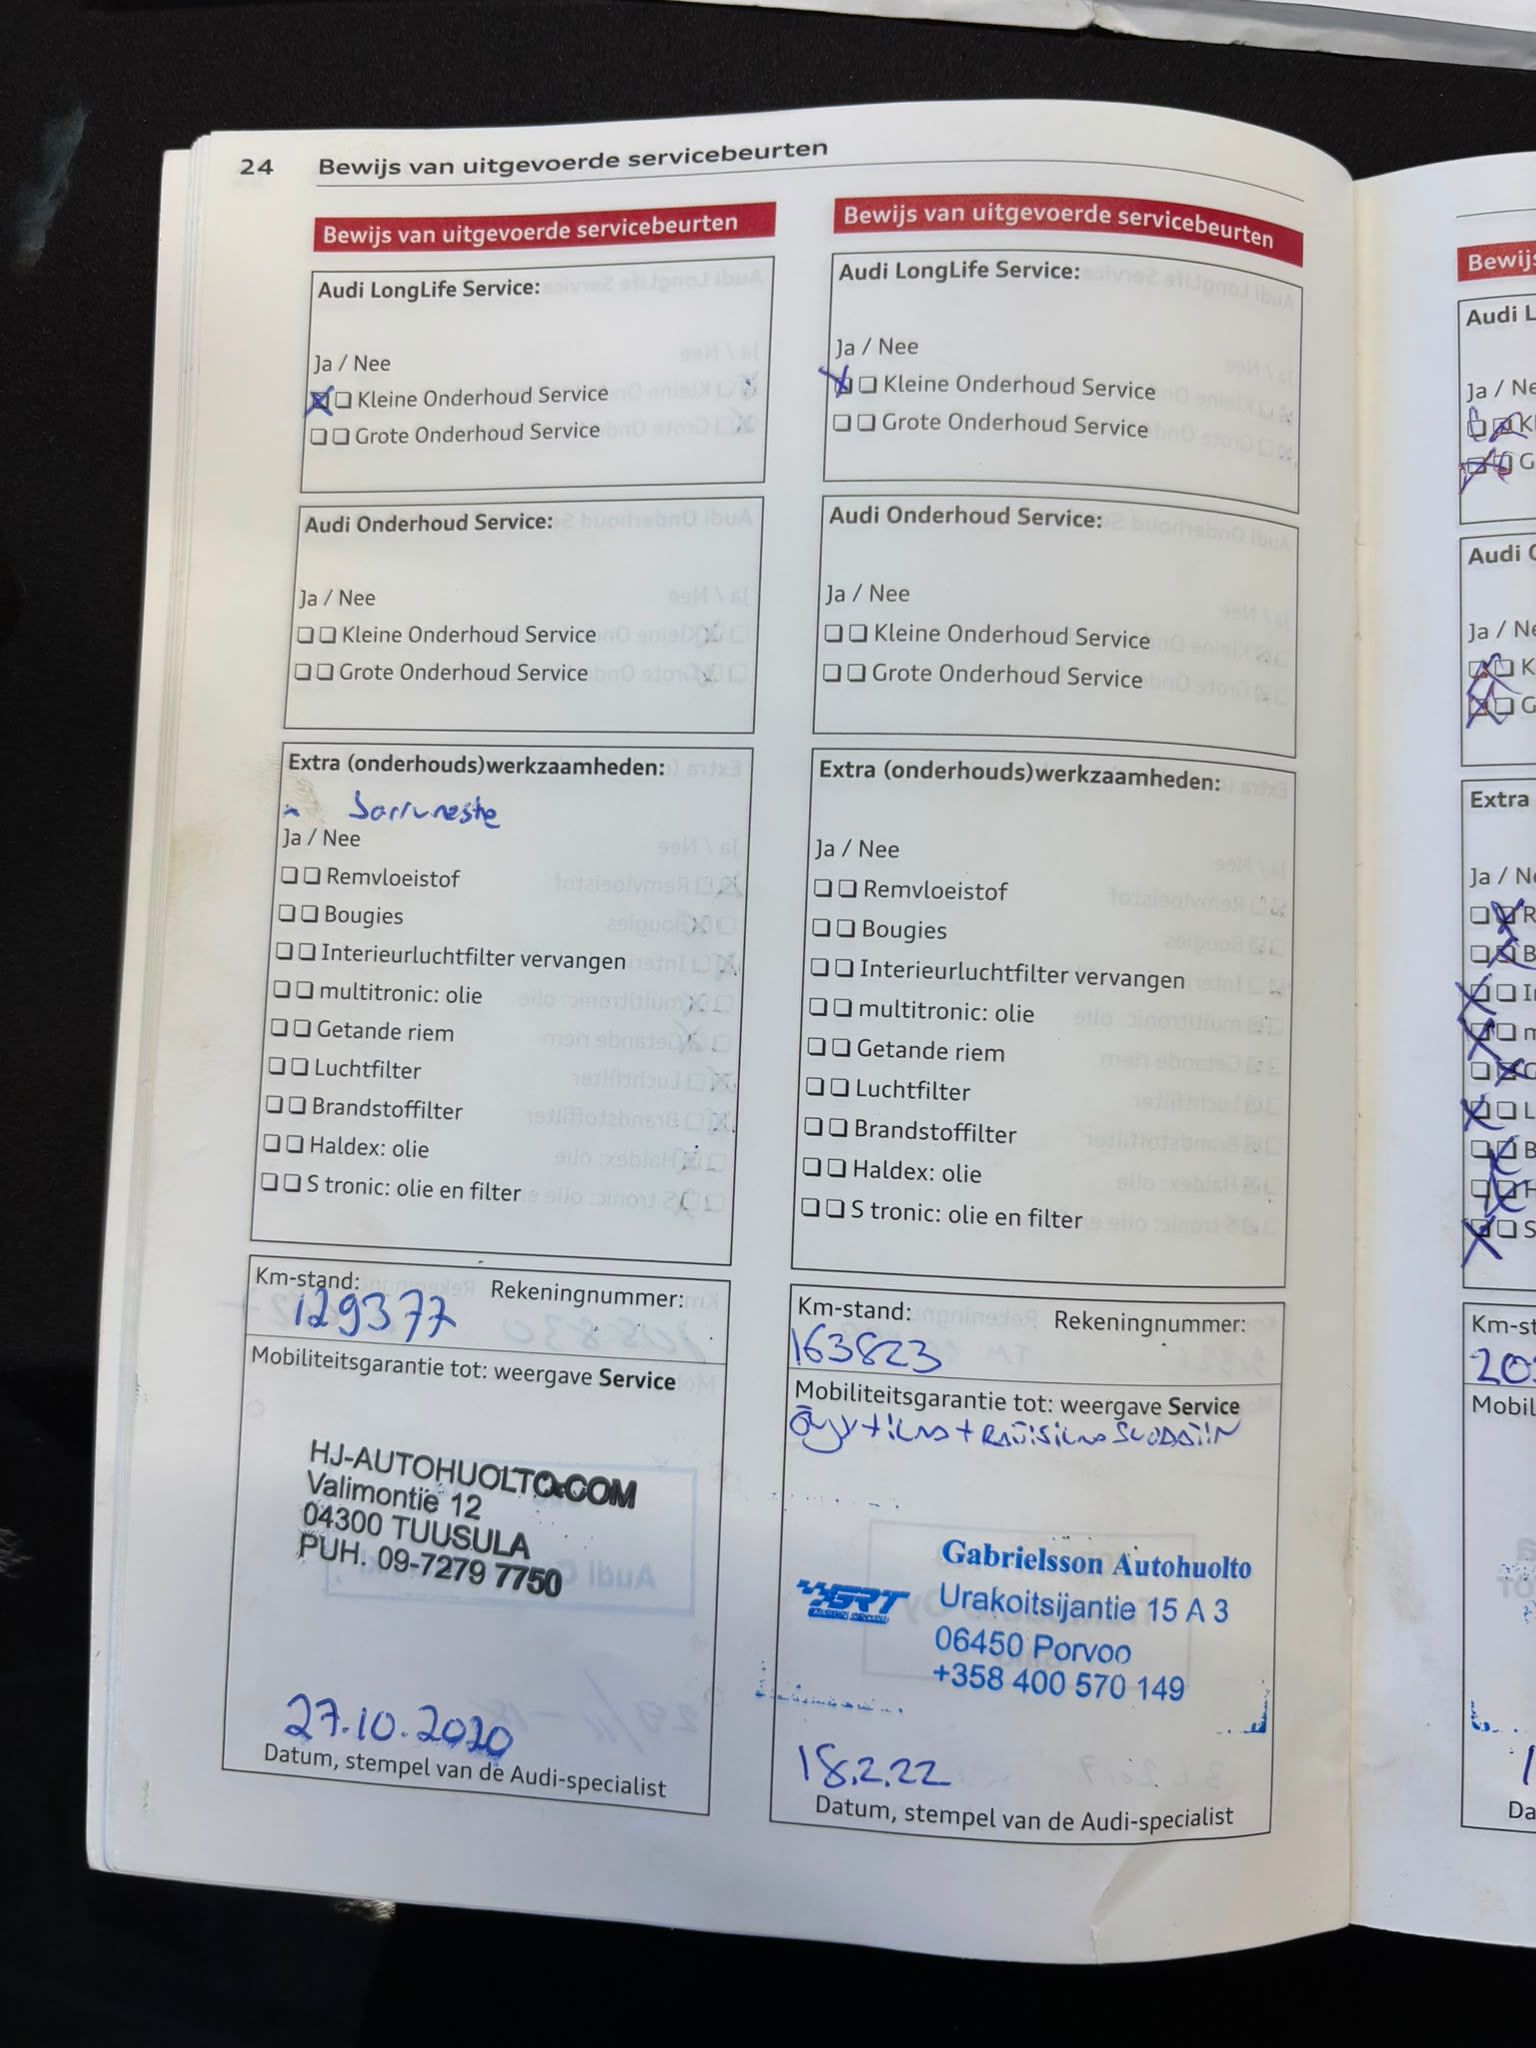 24 Bewijs van uitgevoerde servicebeurten
Bewijs van uitgevoerde servicebeurten
Audi LongLife Service:
Ja / Nee
Kleine Onderhoud Service
Grote Onderhoud Service
Audi Onderhoud Service:
Ja / Nee
Kleine Onderhoud Service
Grote Onderhoud Service
Extra (onderhouds)werkzaamheden:
Jarruneste
Ja / Nee
Remvloeistof
Bougies
Interieurluchtfilter vervangen
multitronic: olie
Getande riem
Luchtfilter
Brandstoffilter
Haldex: olie
S tronic: olie en filter
Km-stand: Rekeningnummer:
129377
Mobiliteitsgarantie tot: weergave Service
HJ-AUTOHUOLTO.COM
Valimontie 12
04300 TUUSULA
PUH. 09-7279 7750
27.10.2020
Datum, stempel van de Audi-specialist
Bewijs van uitgevoerde servicebeurten
Audi LongLife Service:
Ja / Nee
Kleine Onderhoud Service
Grote Onderhoud Service
Audi Onderhoud Service:
Ja / Nee
Kleine Onderhoud Service
Grote Onderhoud Service
Extra (onderhouds)werkzaamheden:
Ja / Nee
Remvloeistof
Bougies
Interieurluchtfilter vervangen
multitronic: olie
Getande riem
Luchtfilter
Brandstoffilter
Haldex: olie
S tronic: olie en filter
Km-stand: Rekeningnummer:
163823
Mobiliteitsgarantie tot: weergave Service
Gabrielsson Autohuolto
GRT
Urakoitsijantie 15 A 3
06450 Porvoo
+358 400 570 149
18.2.22
Datum, stempel van de Audi-specialist
Bewijs
Audi L
Ja / Ne
Audi O
Ja / Ne
Extra
Ja / Ne
Km-st
Mobil
Da